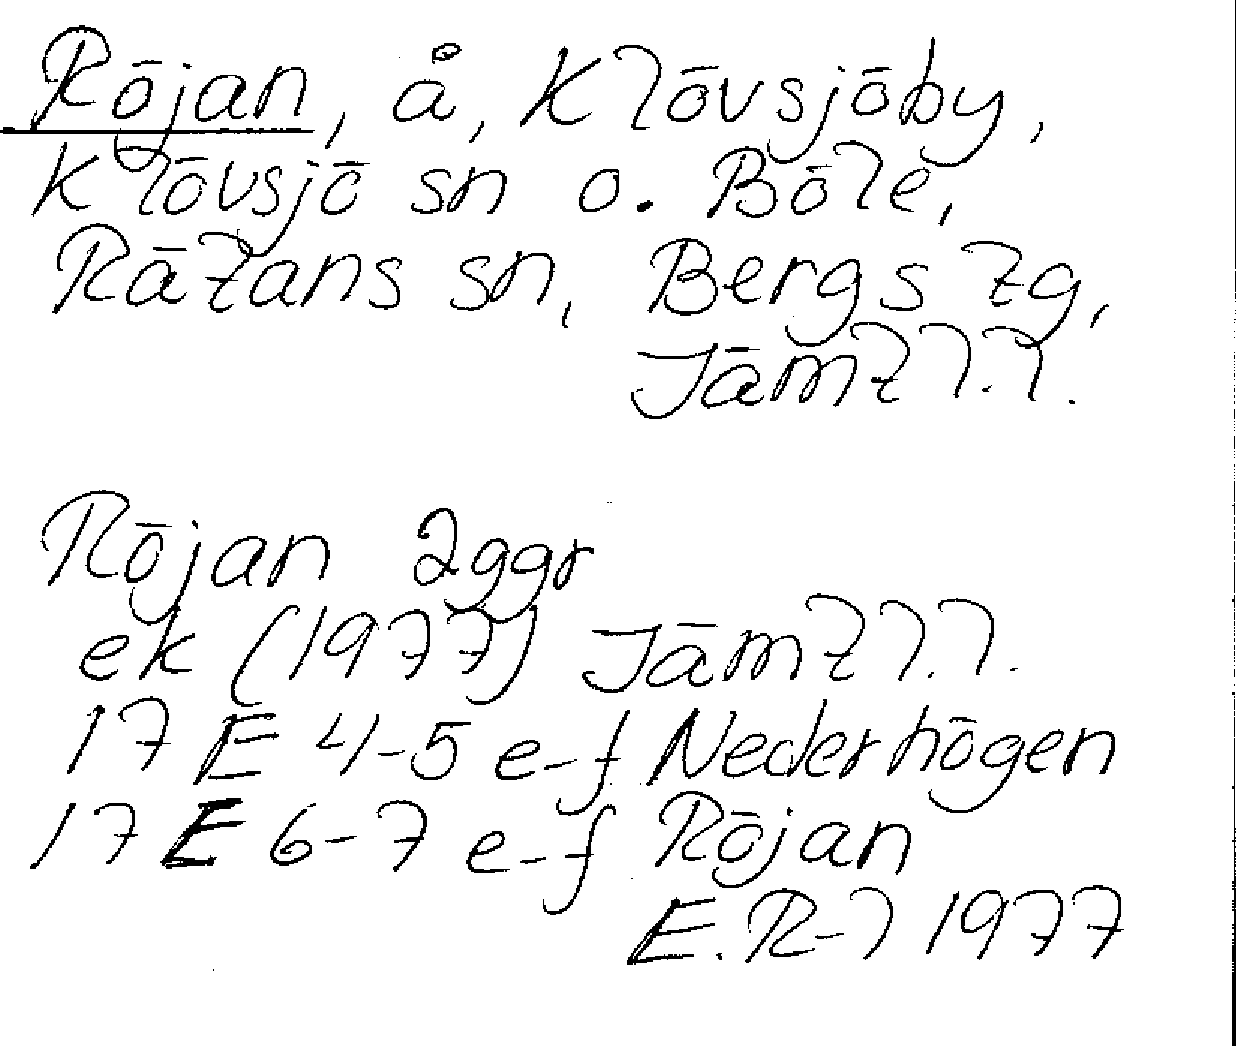 Röjan, å, Klövsjöby,
Klövsjö sn o. Böle,
Rätans sn, Bergs tg,
Jämtl.l.
Röjan 2ggr
ek (1977) Jämtl.l.
17 E 4-5 e-f Nederhögen
17 E 6-7 e-f Röjan
E.R-l 1977